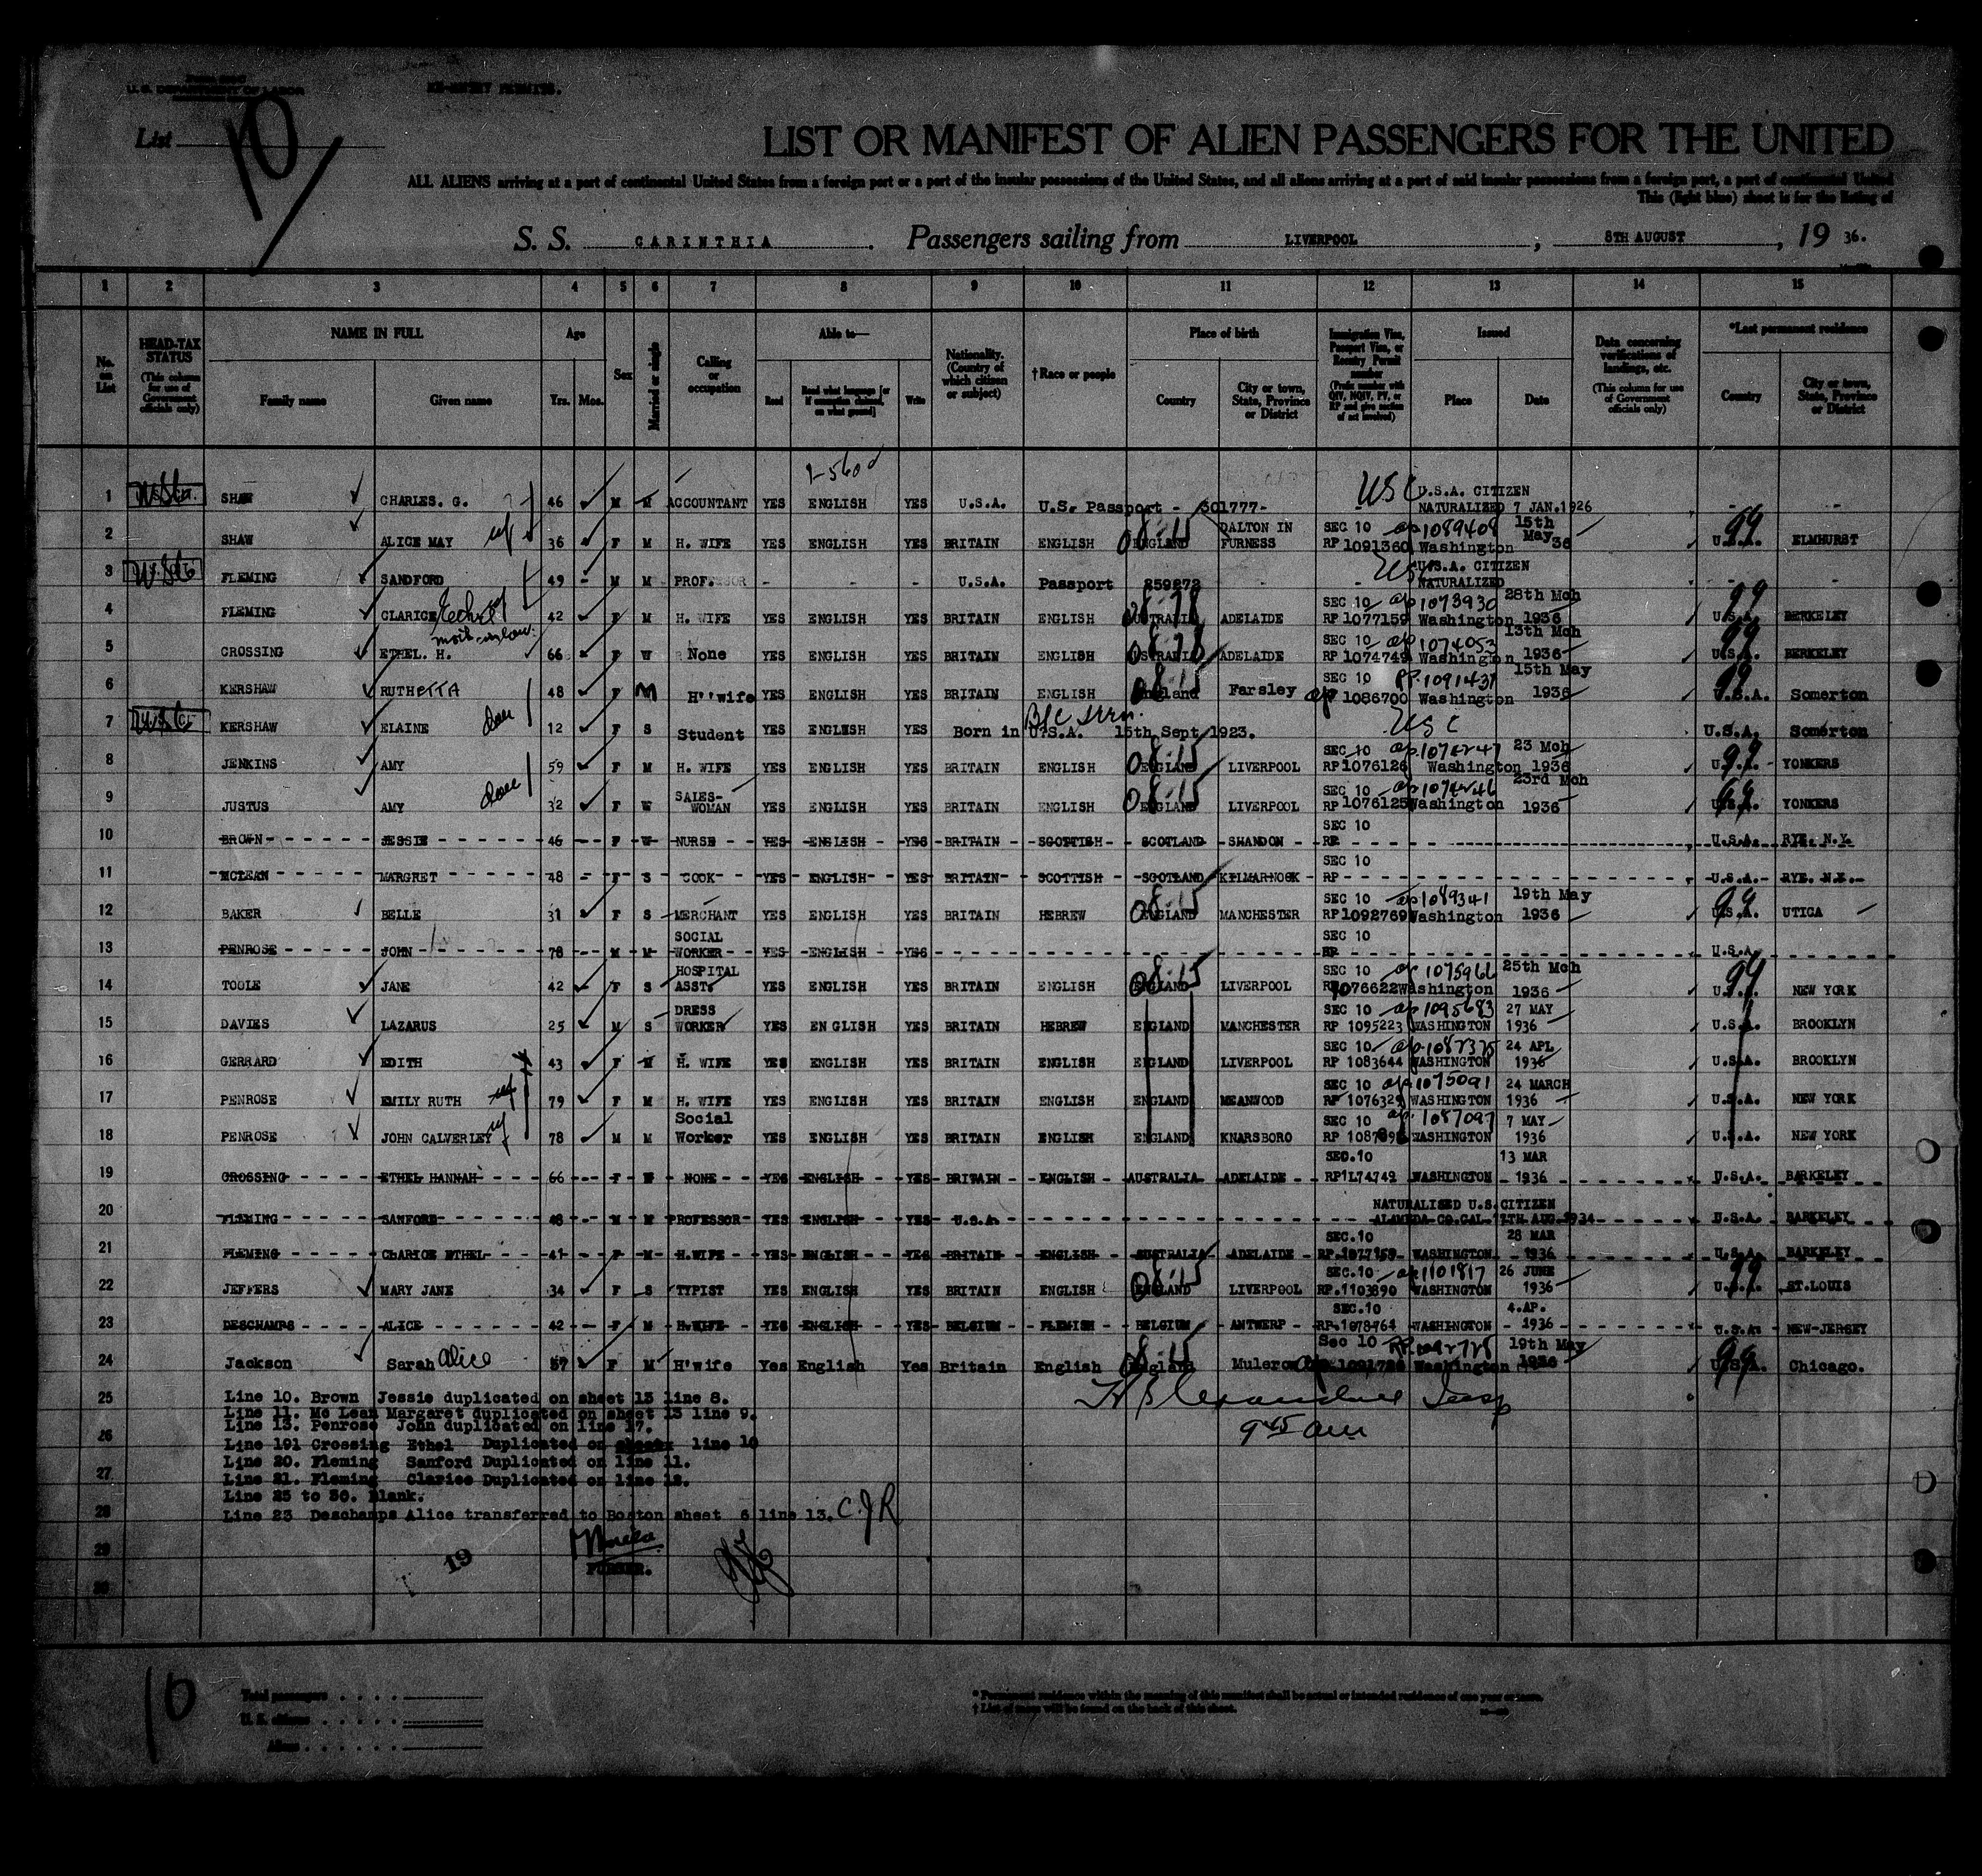 U. S. DEPARTMENT OF LABOR
RE-ENTRY PERMITS.
List 10
LIST OR MANIFEST OF ALIEN PASSENGERS FOR THE UNITED
ALL ALIENS arriving at a port of continental United States from a foreign port or a port of the insular possessions of the United States, and all aliens arriving at a port of said insular possessions from a foreign port, a port of continental United
This (light blue) sheet is for the listing of
S. S. CARINTHIA. Passengers sailing from LIVERPOOL, 8TH AUGUST, 19 36.
1 2 3 4 5 6 7 8 9 10 11 12 13 14 15
No. on List
HEAD-TAX STATUS (This column for use of Government officials only)
NAME IN FULL
Family name Given name
Age
Yrs. Mos.
Sex
Married or single
Calling or occupation
Able to—
Read Read what language [or if exemption claimed, on what ground] Write
Nationality. (Country of which citizen or subject)
†Race or people
Place of birth
Country City or town, State, Province or District
Immigration Visa, Passport Visa, or Reentry Permit number (Prefix number with QIV, NQIV, PV, or RP and give section of act involved)
Issued
Place Date
Data concerning verifications of landings, etc. (This column for use of Government officials only)
*Last permanent residence
Country City or town, State, Province or District
1 SHAW CHARLES. G. 46 M M ACCOUNTANT YES ENGLISH YES U.S.A. U.S. Passport - 301777- USC U.S.A. CITIZEN NATURALIZED 7 JAN.1926 - -
2 SHAW ALICE MAY wf 36 F M H. WIFE YES ENGLISH YES BRITAIN ENGLISH ENGLAND 08.15 DALTON IN FURNESS SEC 10 ap 1089408 RP 1091360 Washington 15th May 36 U.S.A. 99 ELMHURST
3 FLEMING SANDFORD 49 - M M PROFESSOR - - - U.S.A. Passport 259272 - USC U.S.A. CITIZEN NATURALIZED - -
4 FLEMING CLARICE Ethel wf 42 F M H. WIFE YES ENGLISH YES BRITAIN ENGLISH AUSTRALIA 08.78 ADELAIDE SEC 10 ap 1073930 RP 1077159 Washington 28th Mch 1936 U.S.A. 99 BERKELEY
5 CROSSING ETHEL. H. moth-in-law: 66 F W None YES ENGLISH YES BRITAIN ENGLISH AUSTRALIA 08.78 ADELAIDE SEC 10 ap 1074053 RP 1074749 Washington 13th Mch 1936 U.S.A. 99 BERKELEY
6 KERSHAW RUTHETTA 48 F M H''wife YES ENGLISH YES BRITAIN ENGLISH England 08.15 Farsley SEC 10 RP.1091437 ap 1086700 Washington 15th May 1936 U.S.A. 99 Somerton
7 KERSHAW ELAINE dau 12 F S Student YES ENGLISH YES Born in U.S.A. 15th Sept 1923. USC U.S.A. Somerton
8 JENKINS AMY 59 F M H. WIFE YES ENGLISH YES BRITAIN ENGLISH ENGLAND 08.15 LIVERPOOL SEC 10 ap 1074247 RP 1076126 Washington 23 Mch 1936 U.S.A. 99 YONKERS
9 JUSTUS AMY dau 32 F W SALES-WOMAN YES ENGLISH YES BRITAIN ENGLISH ENGLAND 08.15 LIVERPOOL SEC 10 ap 1074246 RP 1076125 Washington 23rd Mch 1936 U.S.A. 99 YONKERS
10 BROWN JESSIE 46 F W NURSE YES ENGLISH YES BRITAIN SCOTTISH SCOTLAND SHANDON SEC 10 RP U.S.A. RYE. N.Y.
11 MCLEAN MARGRET 48 F S COOK YES ENGLISH YES BRITAIN SCOTTISH SCOTLAND KILMARNOCK SEC 10 RP U.S.A. RYE. N.Y.
12 BAKER BELLE 31 F S MERCHANT YES ENGLISH YES BRITAIN HEBREW ENGLAND 08.15 MANCHESTER SEC 10 ap 1089341 RP 1092769 Washington 19th May 1936 U.S.A. 99 UTICA
13 PENROSE JOHN 78 M M SOCIAL WORKER YES ENGLISH YES SEC 10 RP U.S.A.
14 TOOLE JANE 42 F S HOSPITAL ASST. YES ENGLISH YES BRITAIN ENGLISH ENGLAND 08.15 LIVERPOOL SEC 10 ap 1075966 RP 1076622 Washington 25th Mch 1936 U.S.A. 99 NEW YORK
15 DAVIES LAZARUS 25 M S DRESS WORKER YES EN GLISH YES BRITAIN HEBREW ENGLAND MANCHESTER SEC 10 ap 1095683 RP 1095223 WASHINGTON 27 MAY 1936 U.S.A. BROOKLYN
16 GERRARD EDITH 43 F H. WIFE YES ENGLISH YES BRITAIN ENGLISH ENGLAND LIVERPOOL SEC 10 ap 1087375 RP 1083644 WASHINGTON 24 APL 1936 U.S.A. BROOKLYN
17 PENROSE EMILY RUTH wf 79 F M H. WIFE YES ENGLISH YES BRITAIN ENGLISH ENGLAND MEANWOOD SEC 10 ap 1075091 RP 1076329 WASHINGTON 24 MARCH 1936 U.S.A. NEW YORK
18 PENROSE JOHN CALVERLEY 78 M M Social Worker YES ENGLISH YES BRITAIN ENGLISH ENGLAND KNARSBORO SEC 10 ap. 1087097 RP WASHINGTON 7 MAY 1936 U.S.A. NEW YORK
19 CROSSING ETHEL HANNAH 66 F W NONE YES ENGLISH YES BRITAIN ENGLISH AUSTRALIA ADELAIDE SEC.10 RP1L74749 WASHINGTON 13 MAR 1936 U.S.A. BARKELEY
20 FLEMING SANFORD 48 M M PROFESSOR YES ENGLISH YES U.S.A. NATURALISED U.S.CITIZEN ALAMEDA CO.CAL AUG.1934 U.S.A. BARKELEY
21 FLEMING CLARICE ETHEL 41 F M H.WIFE YES ENGLISH YES BRITAIN ENGLISH AUSTRALIA ADELAIDE SEC.10 RP.1077159 WASHINGTON 28 MAR 1936 U.S.A. BARKELEY
22 JEFFERS MARY JANE 34 F S TYPIST YES ENGLISH YES BRITAIN ENGLISH ENGLAND 08.15 LIVERPOOL SEC.10 ap 1101817 RP.1103890 WASHINGTON 26 JUNE 1936 U.S.A. 99 ST.LOUIS
23 DESCHAMPS ALICE 42 F M H.WIFE YES ENGLISH YES BELGIUM FLEMISH BELGIUM ANTWERP SEC.10 RP.1078764 WASHINGTON 4.AP. 1936 U.S.A. NEW-JERSEY
24 Jackson Sarah Alice 57 F M H'wife Yes English Yes Britain English England 08.15 Sec 10 RP.1092728 Washington 19th May 1936 U.S.A. 99 Chicago.
25 Line 10. Brown Jessie duplicated on sheet 13 line 8.
Line 11. Mc Lean Margaret duplicated on sheet 13 line 9.
Line 13. Penrose John duplicated on line 17.
26 Line 191 Crossing Ethel Duplicated on line 10
Line 20. Fleming Sanford Duplicated on line 11.
27 Line 21. Fleming Clarice Duplicated on line 12.
Line 25 to 30. Blank.
28 Line 23 Deschamps Alice transferred to Boston sheet 6 line 13. C.J.R
9 45 am
29
19
PURSER.
30
10
Total passengers
U. S. citizens
Aliens
* Permanent residence within the meaning of this manifest shall be actual or intended residence of one year or more.
† List of races will be found on the back of this sheet.